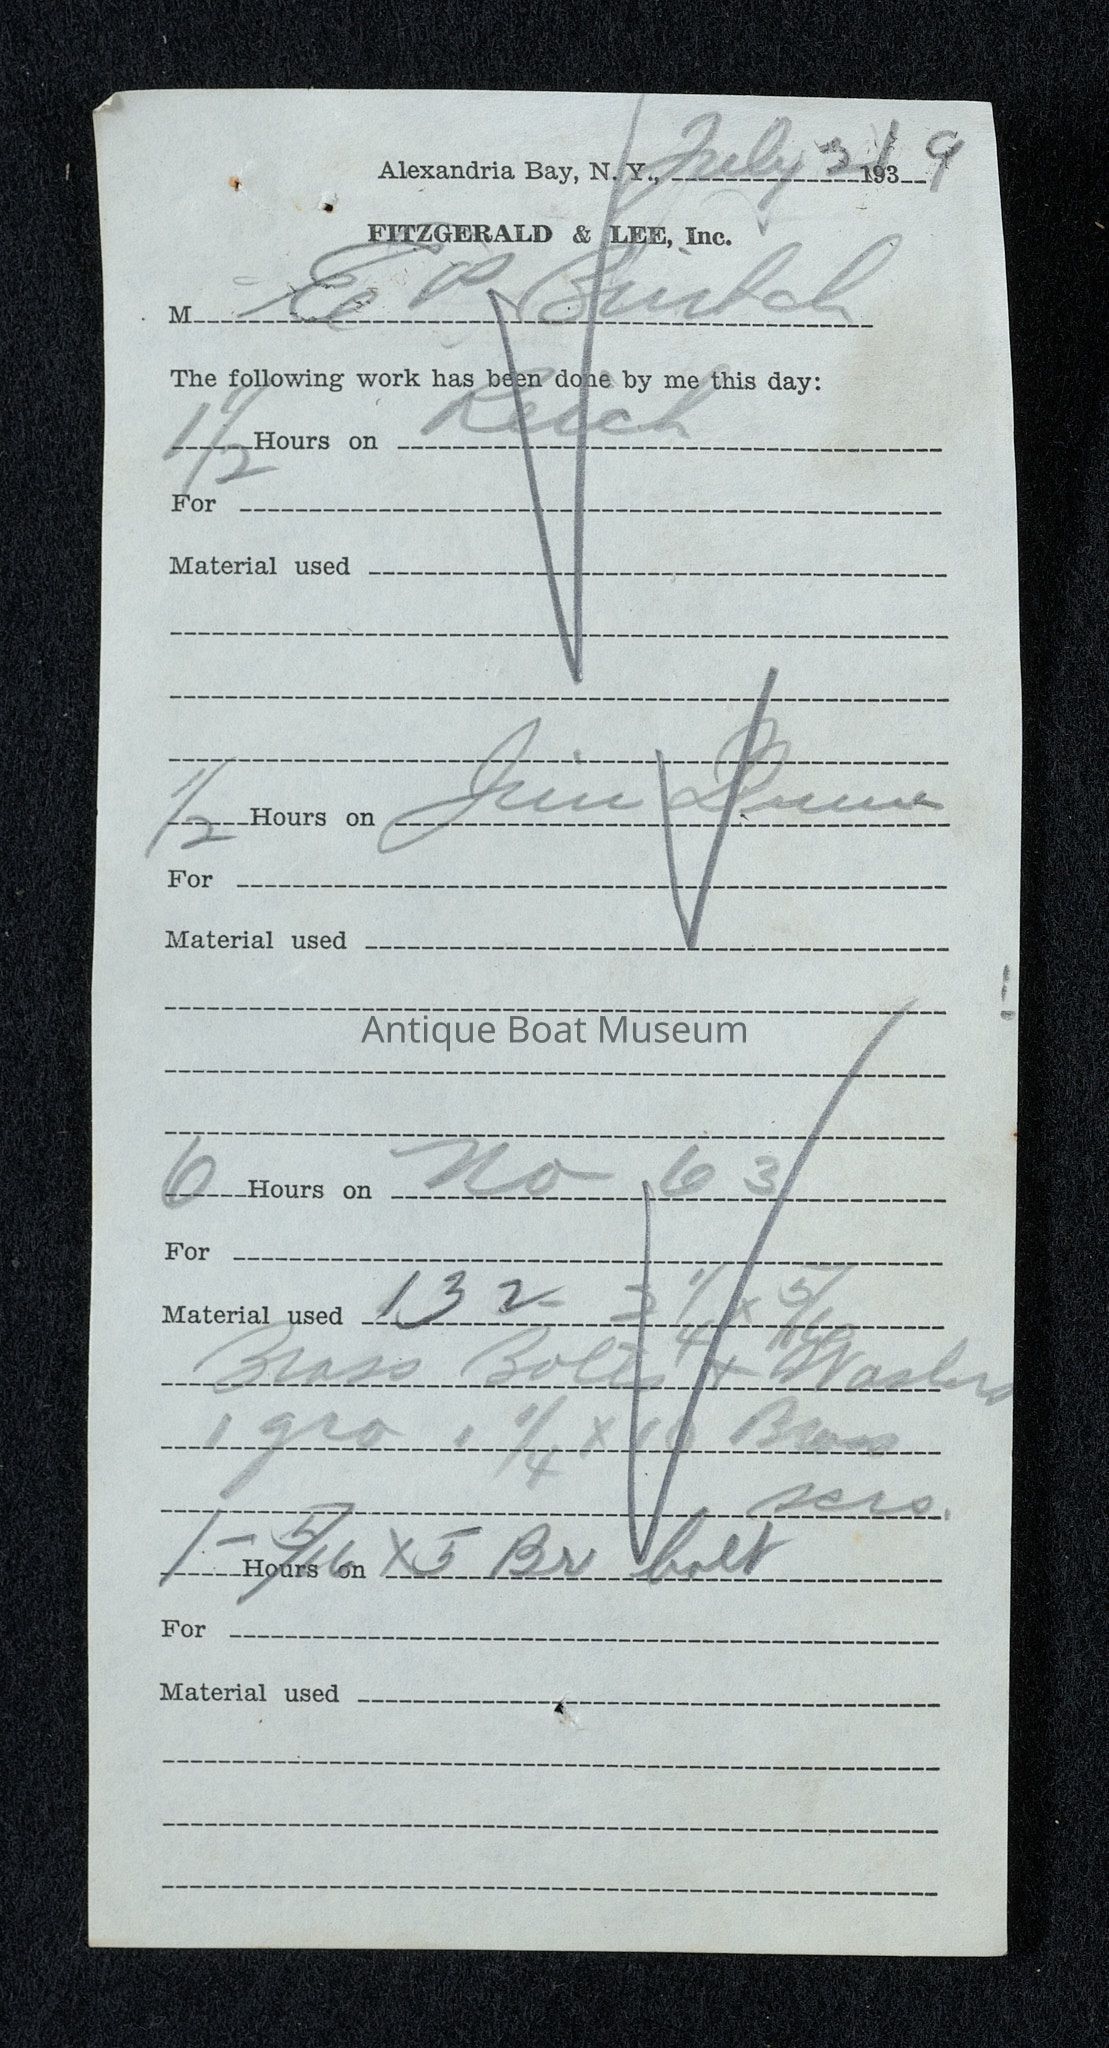 Alexandria Bay, N. Y., July 31 1939
FITZGERALD & LEE, Inc.
M E P
The following work has been done by me this day:
1 1/2 Hours on Reich
For
Material used
1/2 Hours on Jim
For
Material used
Antique Boat Museum
6 Hours on No 63
For
Material used 132 - 3 1/4 x 5/16
Brass Bolts + Washers
1 gro 1 1/4 x 10 Brass
scrs.
1 - 5/16 x 5 Br bolt
Hours on
For
Material used